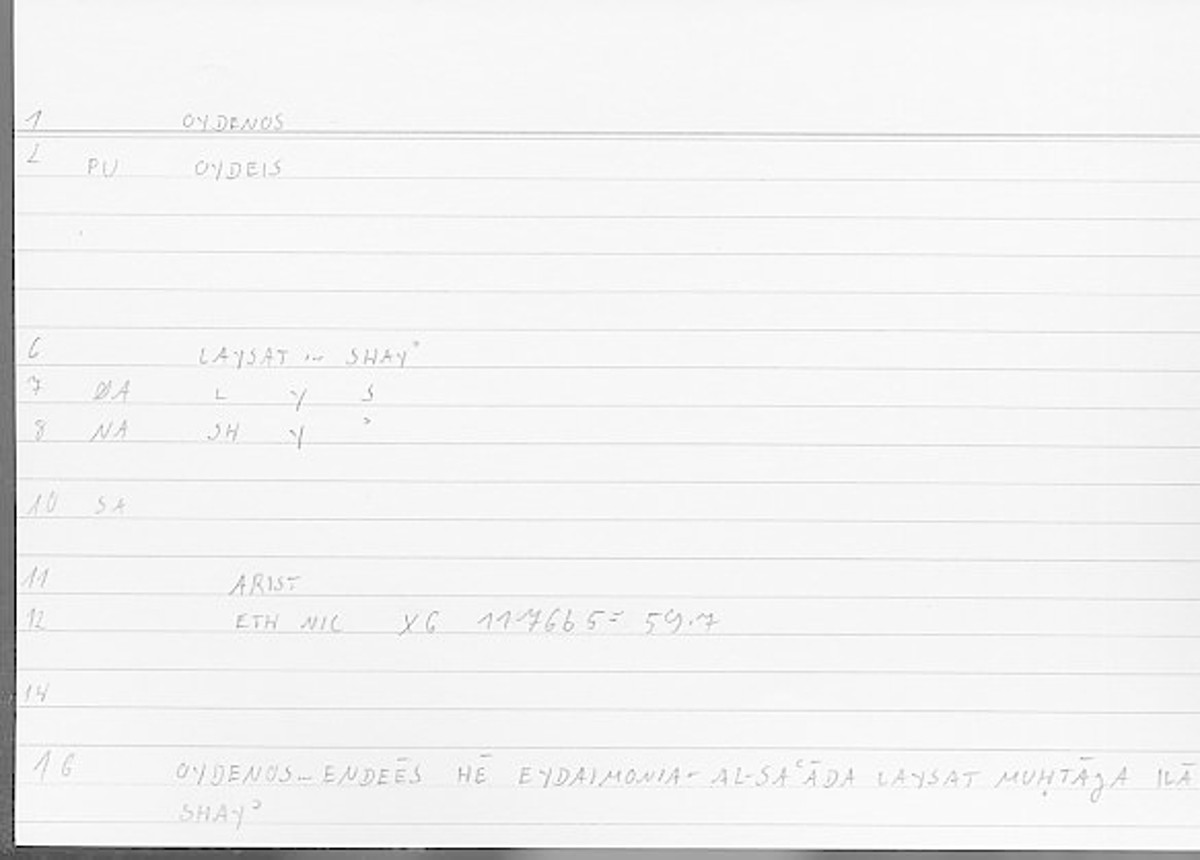 1 OYDENOS
2 PU OYDEIS
6 LAYSAT ... SHAYʾ
7 ØA L Y S
8 NA SH Y ʾ
10 SA
11 ARIST
12 ETH NIC X6 1176b5= 59.7
14
16 OYDENOS... ENDEĒS HĒ EYDAIMONIA- AL-SAʿĀDA LAYSAT MUḤTĀGA ILĀ
SHAYʾ